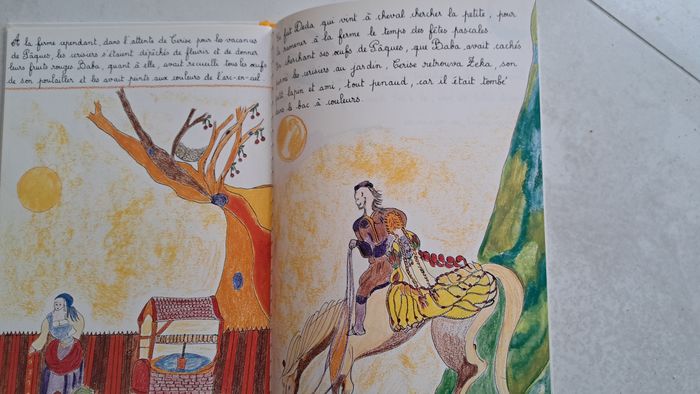 À la ferme cependant, dans l'attente de Cerise pour les vacances
de Pâques, les cerisiers s'étaient dépêchés de fleurir et de donner
leurs fruits rouges. Baba, quant à elle, avait recueilli tous les œufs
de son poulailler et les avait peints aux couleurs de l'arc-en-ciel.
fut Deda, qui vint à cheval chercher la petite, pour
ramener à la ferme le temps des fêtes pascales.
cherchant ses œufs de Pâques, que Baba avait cachés
les cerisiers au jardin, Cerise retrouva Zeka, son
petit lapin et ami, tout penaud, car il était tombé
dans le bac à couleurs.